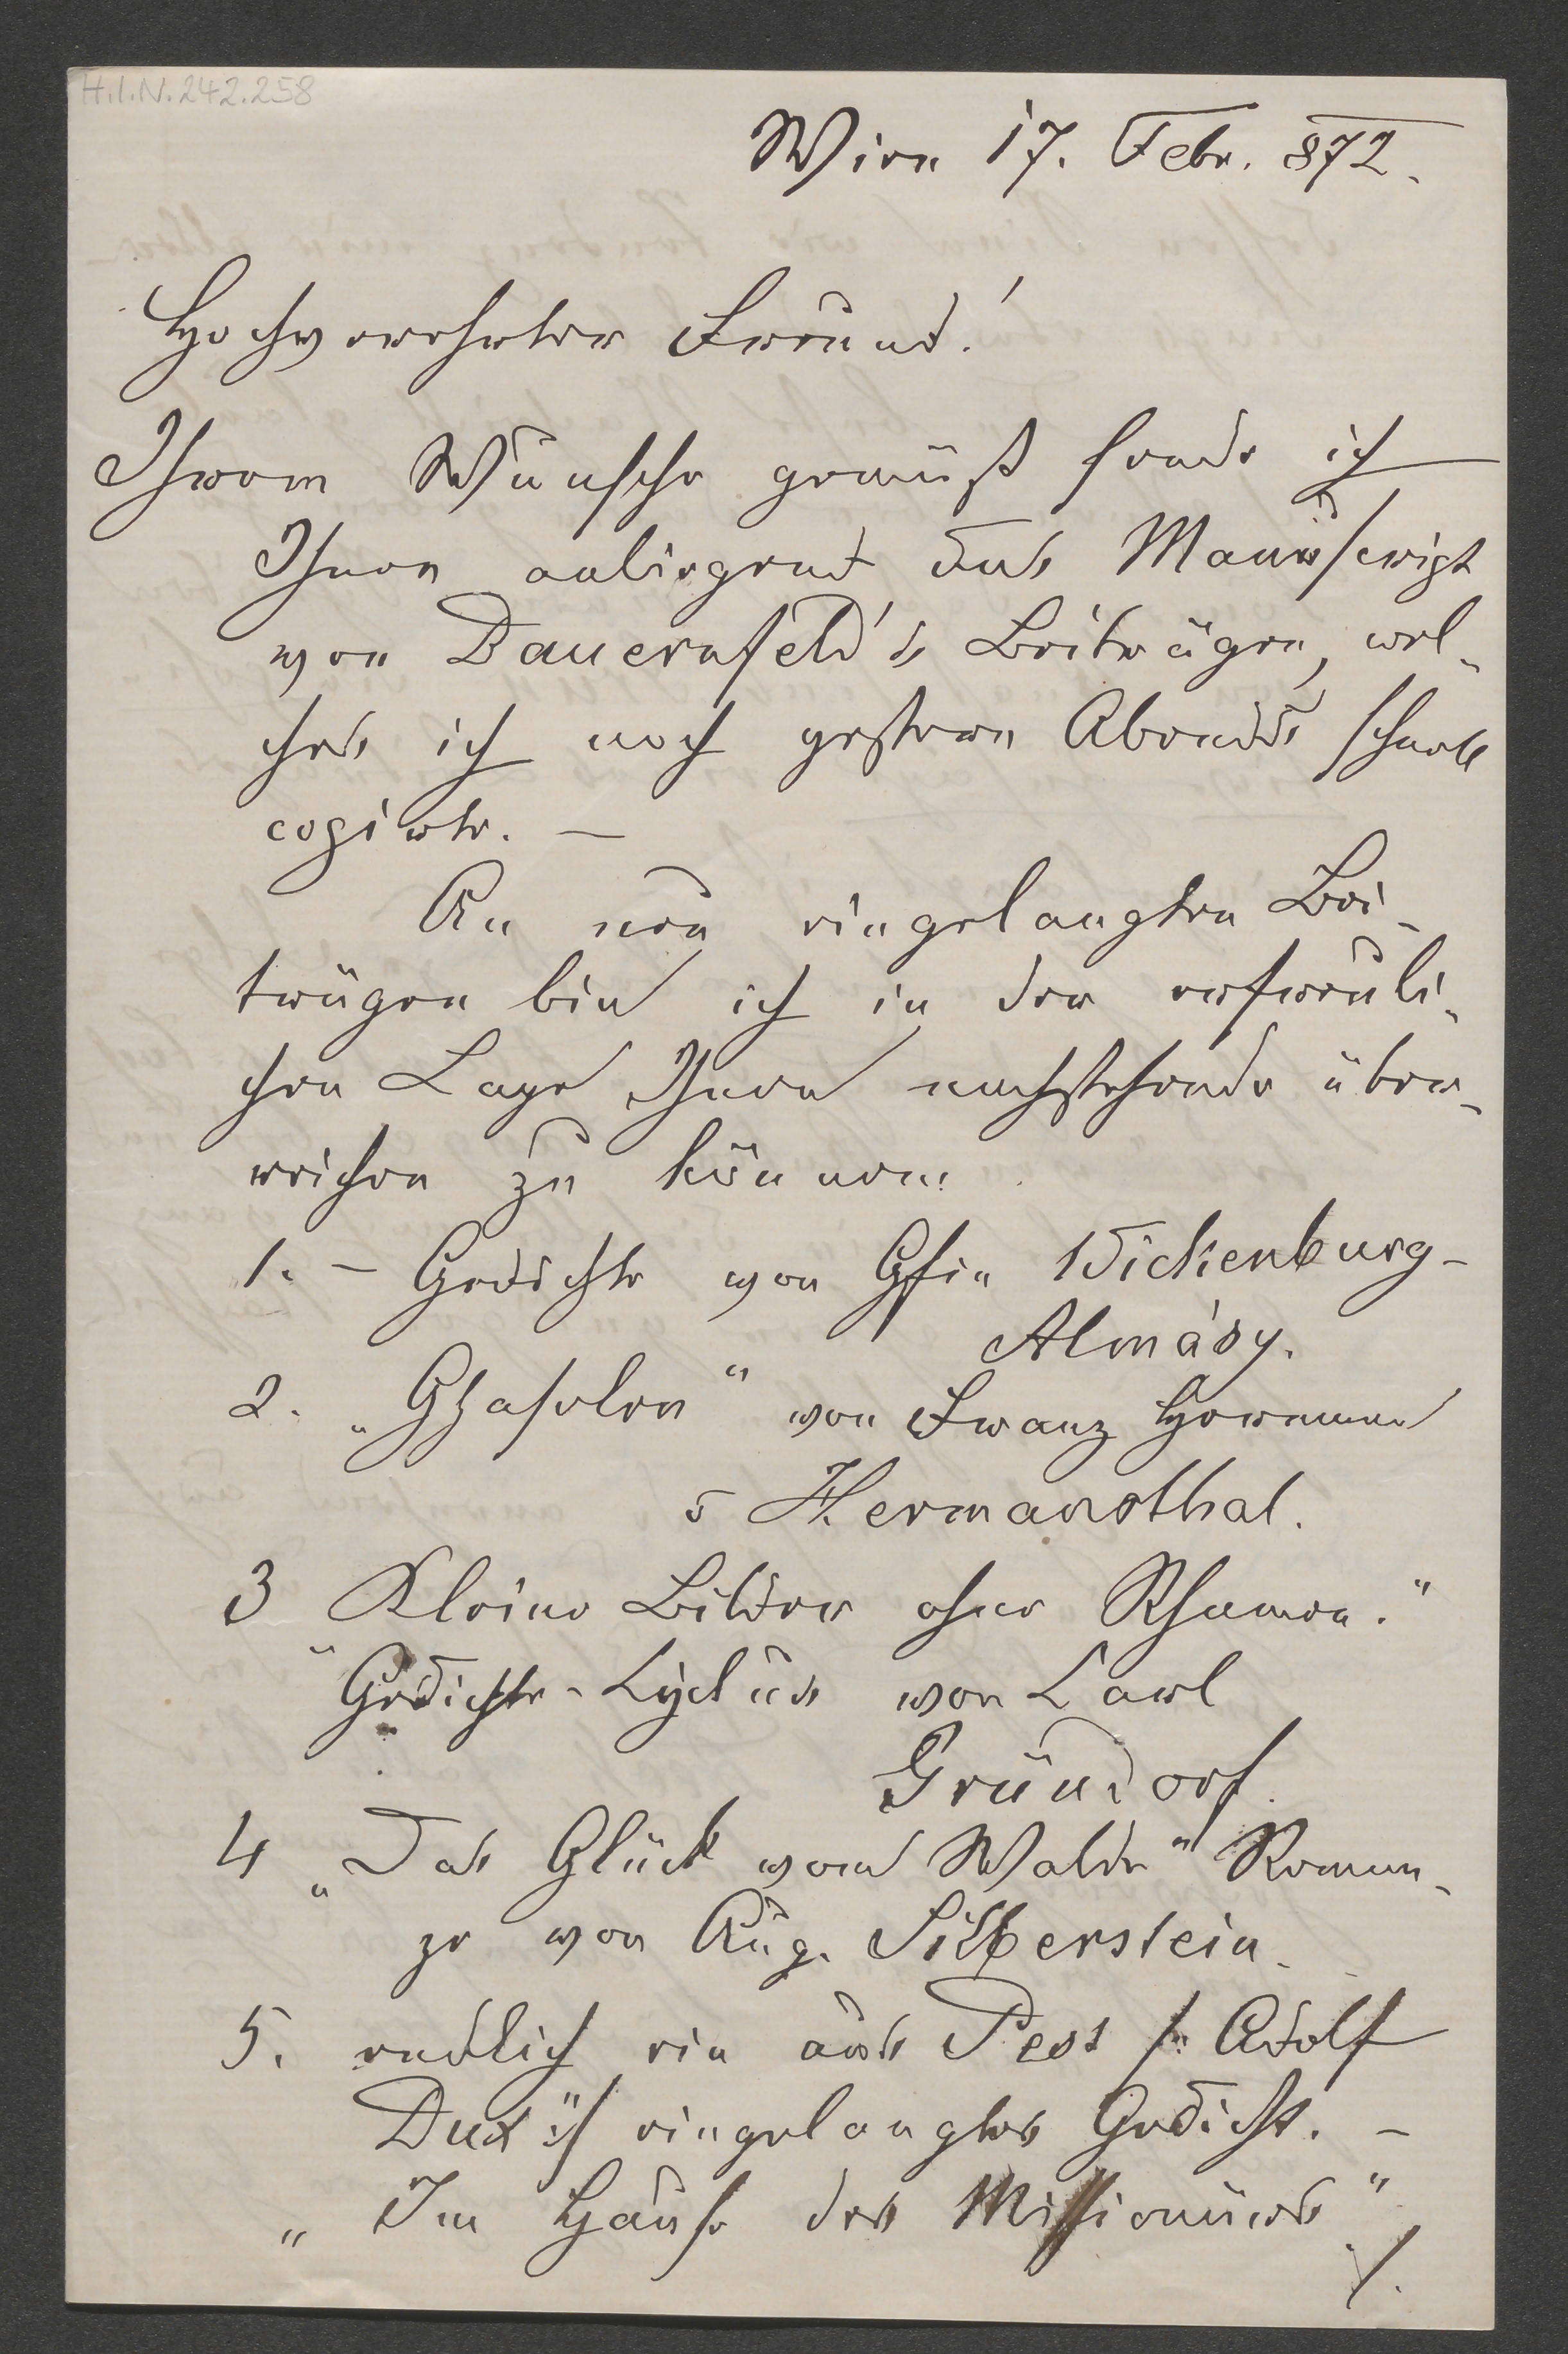 H.I.N. 242.258
Wien 17. Febr. 872.
Hochverehrter Freund!
Ihrem Wunsche gemäß sende ich
Ihnen anliegend das Manuscript
von Bauernfeld's Beiträgen, wel-
ches ich noch gestern Abends schnell
copirte. —
An neu eingelangten Bei-
trägen bin ich in der erfreuli-
chen Lage Ihnen nachstehende über-
reichen zu können:
1. – Gedichte von Gfin Wickenburg-
Almásy.
2. „Ghaselen" von Franz Hermann
v Hermansthal.
3 „Kleine Bilder ohne Rahmen."
Gedichte-Cyclus von Carl
Gründorf.
4 „Das Glück vom Walde" Roman-
ze von Aug. Silberstein.
5. endlich ein aus Pest /: Adolf
Dux :/ eingelangtes Gedicht. –
„Im Hause des Missionärs"
/.